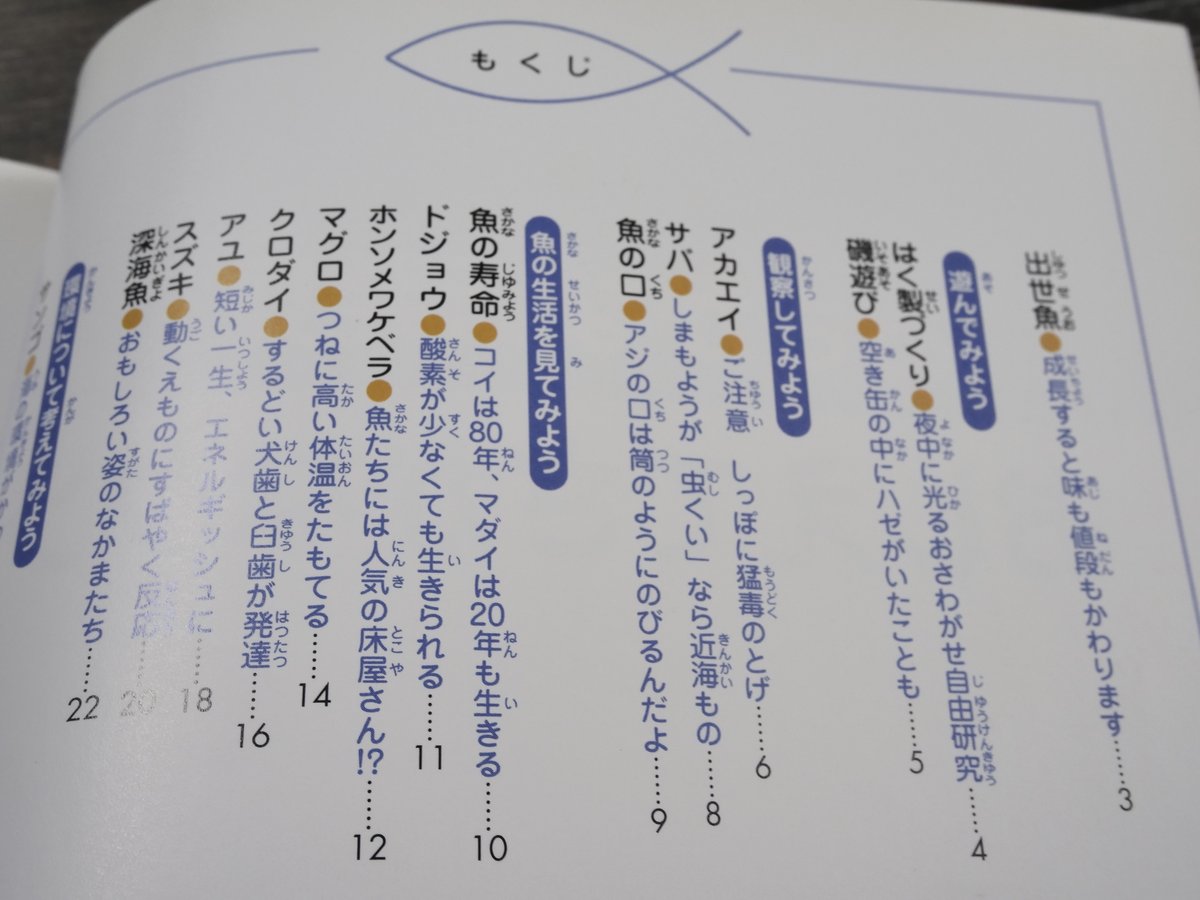 もくじ
出世魚●成長すると味も値段もかわります……3
遊んでみよう
はく製づくり●夜中に光るおさわがせ自由研究……4
磯遊び●空き缶の中にハゼがいたことも……5
観察してみよう
アカエイ●ご注意 しっぽに猛毒のとげ……6
サバ●しまもようが「虫くい」なら近海もの……8
魚の口●アジの口は筒のようにのびるんだよ……9
魚の生活を見てみよう
魚の寿命●コイは80年、マダイは20年も生きる……10
ドジョウ●酸素が少なくても生きられる……11
ホンソメワケベラ●魚たちには人気の床屋さん!?……12
マグロ●つねに高い体温をたもてる……14
クロダイ●するどい犬歯と臼歯が発達……16
アユ●短い一生、エネルギッシュに……18
スズキ●動くえものにすばやく反応……20
深海魚●おもしろい姿のなかまたち……22
環境について考えてみよう
サンゴ●